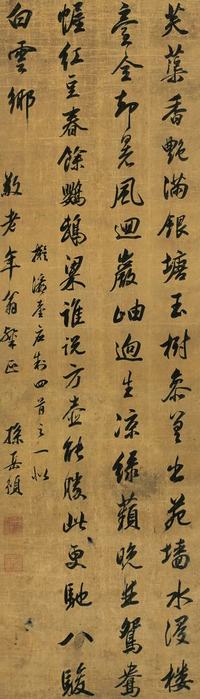 芙蕖香艷滿銀塘玉樹參差出苑墻水浸樓
臺全却暑風迴巖岫迥生涼綠蘋晚並鴛鴦
幄紅豆春餘鸚鵡粱誰說方壺能勝此更馳八駿
白雲鄉
擬瀛臺應制四首之一似
敬老年翁粲正
孫岳頒